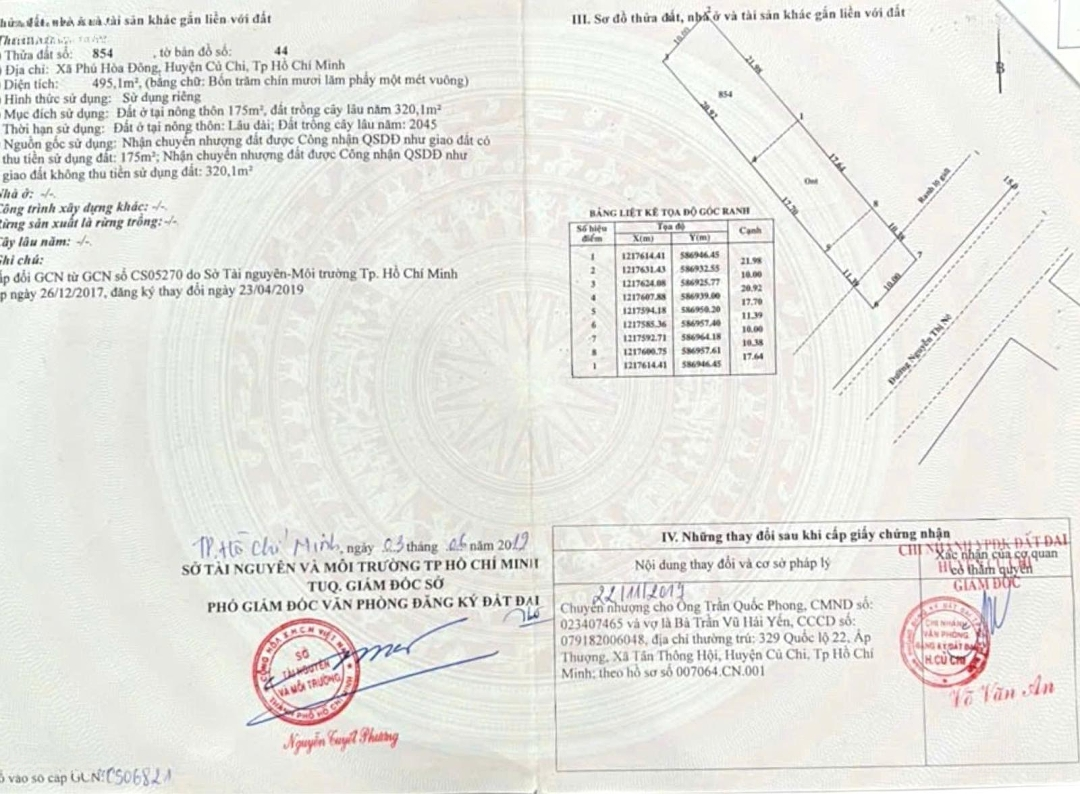 hửa đất, nhà ở và tài sản khác gắn liền với đất
Thửa đất số: 854 , tờ bản đồ số: 44
Địa chỉ: Xã Phú Hòa Đông, Huyện Củ Chi, Tp Hồ Chí Minh
Diện tích: 495,1m², (bằng chữ: Bốn trăm chín mươi lăm phẩy một mét vuông)
Hình thức sử dụng: Sử dụng riêng
Mục đích sử dụng: Đất ở tại nông thôn 175m², đất trồng cây lâu năm 320,1m²
Thời hạn sử dụng: Đất ở tại nông thôn: Lâu dài; Đất trồng cây lâu năm: 2045
Nguồn gốc sử dụng: Nhận chuyển nhượng đất được Công nhận QSDĐ như giao đất có
thu tiền sử dụng đất: 175m²; Nhận chuyển nhượng đất được Công nhận QSDĐ như
giao đất không thu tiền sử dụng đất: 320,1m²
Nhà ở: -/-.
Công trình xây dựng khác: -/-.
Rừng sản xuất là rừng trồng: -/-.
Cây lâu năm: -/-.
Ghi chú:
ấp đổi GCN từ GCN số CS05270 do Sở Tài nguyên-Môi trường Tp. Hồ Chí Minh
p ngày 26/12/2017, đăng ký thay đổi ngày 23/04/2019
TP. Hồ Chí Minh, ngày 03 tháng 06 năm 2019
SỞ TÀI NGUYÊN VÀ MÔI TRƯỜNG TP HỒ CHÍ MINH
TUQ. GIÁM ĐỐC SỞ
PHÓ GIÁM ĐỐC VĂN PHÒNG ĐĂNG KÝ ĐẤT ĐAI
SỞ
TÀI NGUYÊN
VÀ MÔI TRƯỜNG
Nguyễn Tuyết Phương
ố vào sổ cấp GCN: CS06821
III. Sơ đồ thửa đất, nhà ở và tài sản khác gắn liền với đất
B
10.00
21.98
854
20.92
1
4
17.64
Ont
17.70
8
5
10.38
7
11.39
10.00
6
Ranh lộ giới
15.0
Đường Nguyễn Thị Nê
BẢNG LIỆT KÊ TỌA ĐỘ GÓC RANH
Số hiệu điểm Tọa độ Cạnh
X(m) Y(m)
1 1217614.41 586946.45
21.98
2 1217631.43 586932.55
10.00
3 1217624.08 586925.77
20.92
4 1217607.88 586939.00
17.70
5 1217594.18 586950.20
11.39
6 1217585.36 586957.40
10.00
7 1217592.71 586964.18
10.38
8 1217600.75 586957.61
17.64
1 1217614.41 586946.45
IV. Những thay đổi sau khi cấp giấy chứng nhận
Nội dung thay đổi và cơ sở pháp lý
Xác nhận của cơ quan
có thẩm quyền
CHI NHÁNH VPĐK ĐẤT ĐAI
GIÁM ĐỐC
22/11/2019
Chuyển nhượng cho Ông Trần Quốc Phong, CMND số:
023407465 và vợ là Bà Trần Vũ Hải Yến, CCCD số:
079182006048, địa chỉ thường trú: 329 Quốc lộ 22, Ấp
Thượng, Xã Tân Thông Hội, Huyện Củ Chi, Tp Hồ Chí
Minh; theo hồ sơ số 007064.CN.001
CHI NHÁNH
VĂN PHÒNG
ĐĂNG KÝ ĐẤT ĐAI
H.CỦ CHI
Võ Văn An